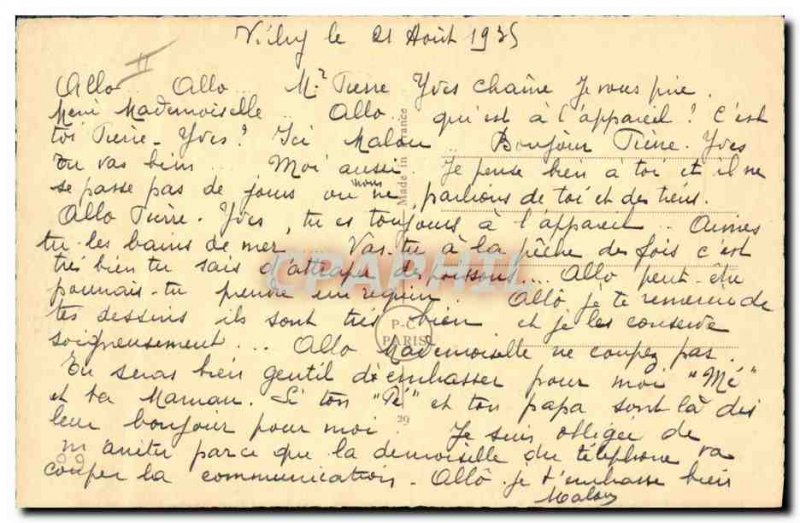 Vichy le 21 Août 1935
II
Allo .. Allo .. Mr Pierre Yves Chaîne Je vous prie.
Merci Mademoiselle .. Allo. qui est à l'appareil? C'est
toi Pierre-Yves? Ici Malou .. Bonjour Pierre-Yves
Tu vas bien ... Moi aussi Je pense bien à toi et il ne
se passe pas de jours ou nous ne parlions de toi et des tiens.
Allo Pierre-Yves, tu es toujours à l'appareil .. Aimes
tu les bains de mer ... Vas-tu à la pêche des fois c'est
très bien tu sais d'attraper des poissons.... Allo peut-être
pourrais-tu prendre un requin. Allô je te remercie de
tes dessins ils sont très bien et je les conserve
soigneusement... Allo Mademoiselle ne coupez pas.
Tu seras bien gentil d'embrasser pour moi "Mé"
et ta Maman. Si ton "Pé" et ton papa sont là dis
leur bonjour pour moi Je suis obligée de
m'arrêter parce que la demoiselle du téléphone va
couper la communication. Allô je t'embrasse bien
Malou
Made in France
P-C
PARIS
29
CPAPHIL